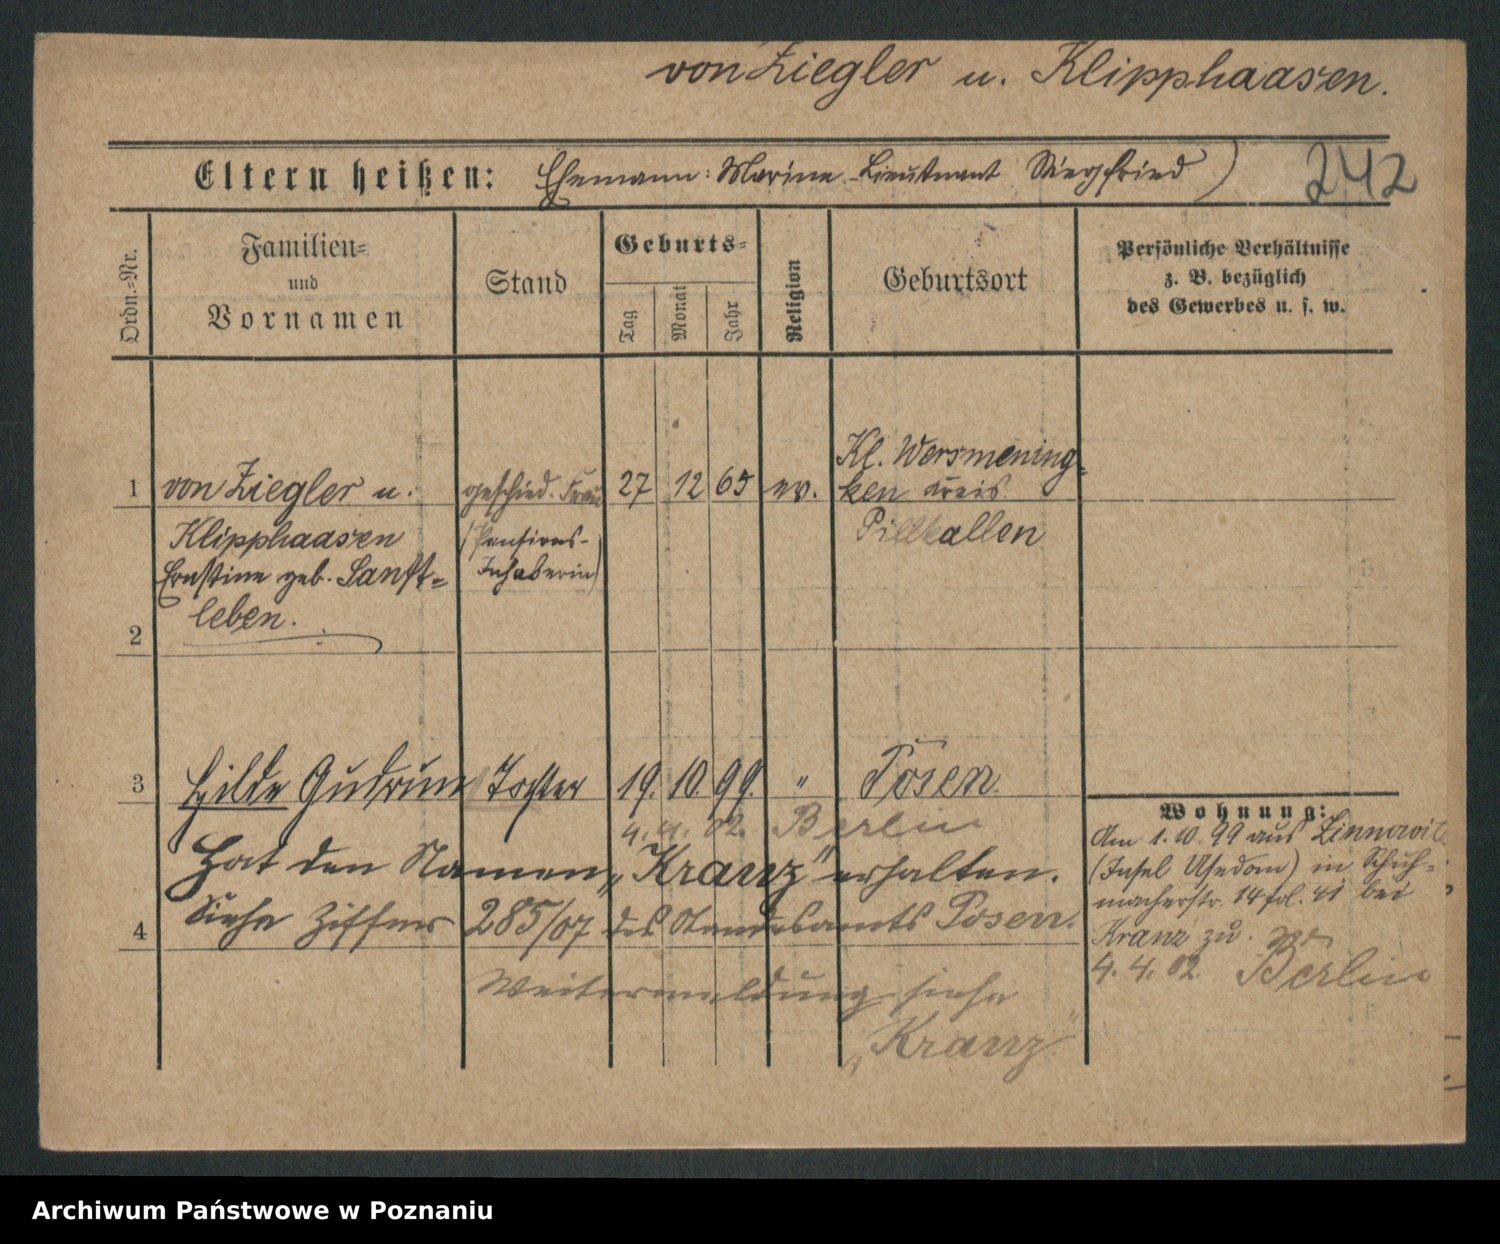 von Ziegler u. Klipphaasen.
Eltern heißen: Ehemann: Marine-Lieutnant Siegfried) 242
Ordn.-Nr.
Familien-
und
Vornamen
Stand
Geburts-
Tag
Monat
Jahr
Religion
Geburtsort
Persönliche Verhältnisse
z. B. bezüglich
des Gewerbes u. s. w.
1 von Ziegler u. geschied. Frau 27 12 65 ev. Kl. Wersmening-
ken Kreis
Klipphaasen (Pensions- Pillkallen
Ernstine geb. Sanft- Inhaberin)
2 leben.
3 Hilde Gudrun Tochter 19. 10. 99. " Posen.
4. 4. 02. Berlin
Hat den Namen „Kranz" erhalten.
4 Siehe Ziffer 285/07 des Standesamts Posen.
Weitermeldung siehe
„Kranz"
Wohnung:
Am 1. 10. 99 aus Zinnowitz
(Insel Usedom) in Schuh-
macherstr. 14 fol. 41 bei
Kranz zu.
4. 4. 02. Berlin
Archiwum Państwowe w Poznaniu